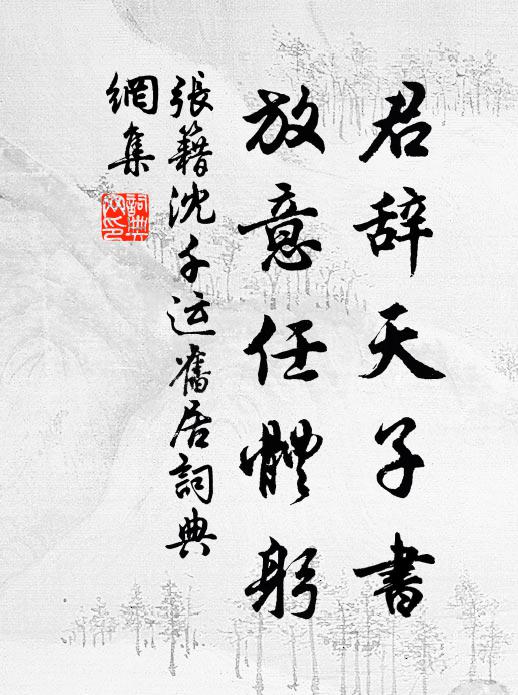 君辞天子書
放意任體躬
張籍沈千运舊居詞典
網集
詞典
网印